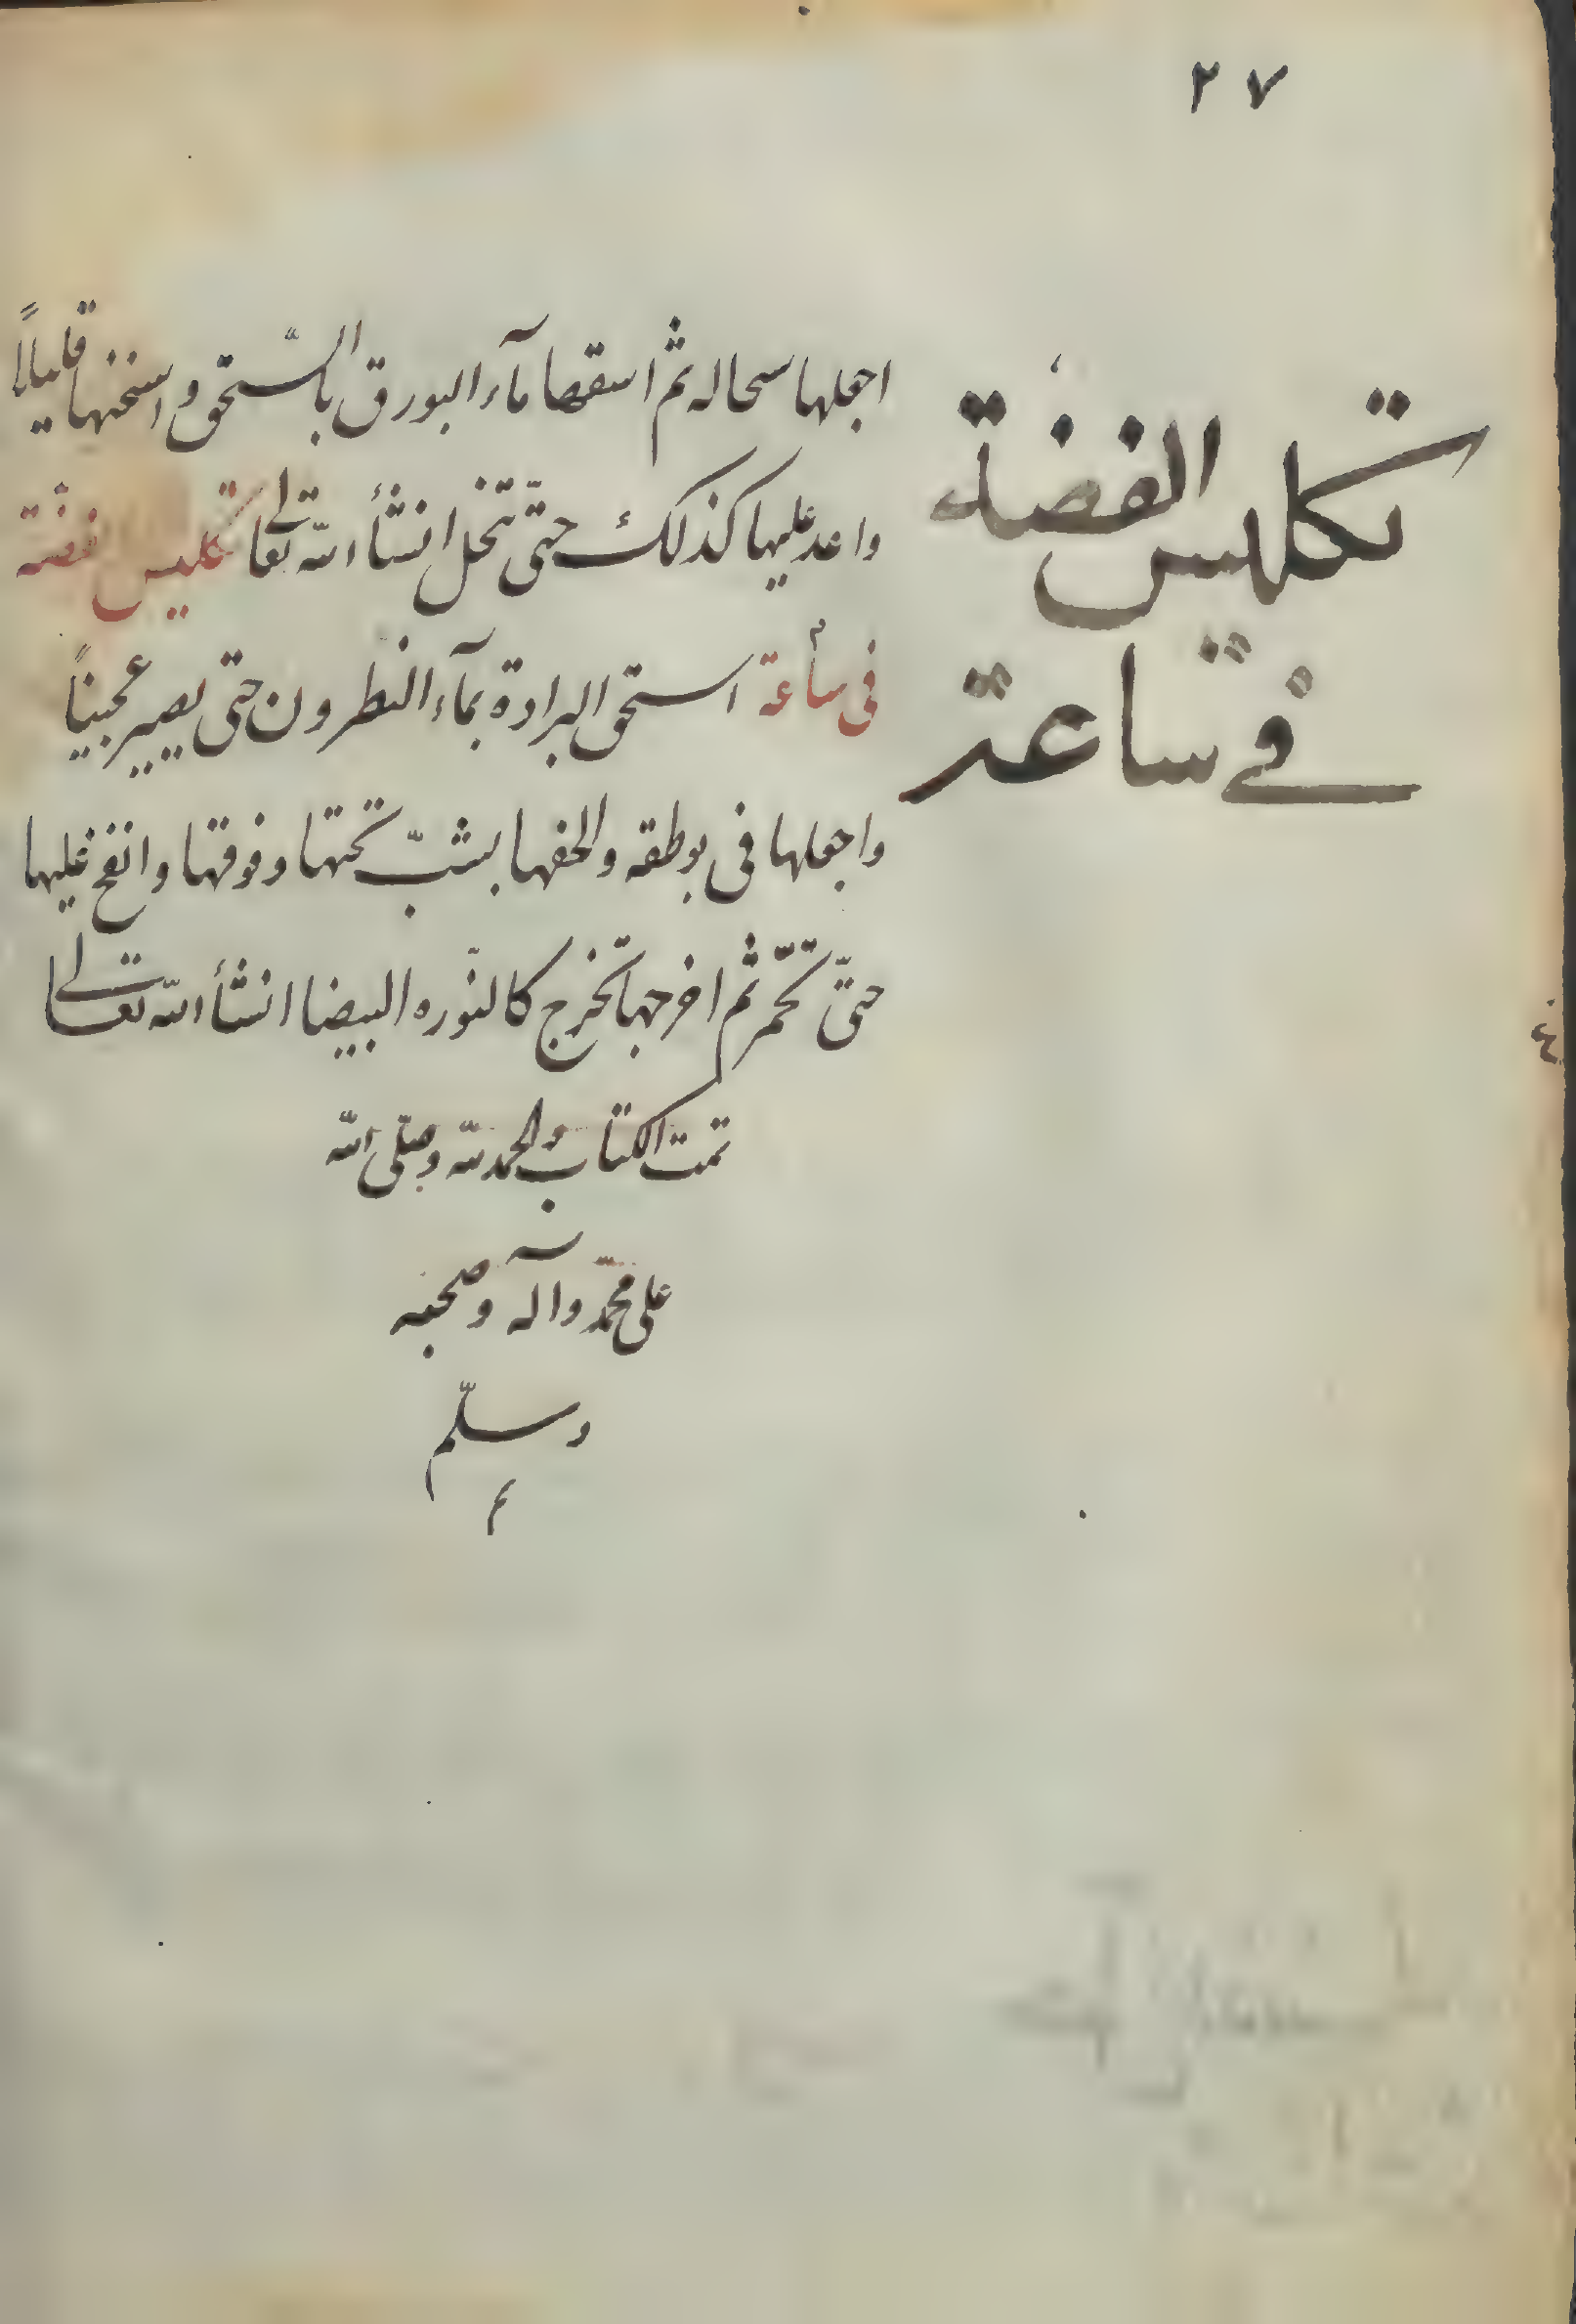 ٢٧
تكليس الفضة
في ساعة
اجعلها سحاله ثم اسقها مآء البورق بالسّحق واسخنها قليلاً
واعد عليها كذلك حتّى تنحل انشأ الله تعالى تكليس الفضة
فى ساعة استحق البرادة بمآء النطرون حتى يصير عجيناً
واجعلها فى بوطقه والحفها بشبّ تحتها وفوقها وانفخ عليها
حتّى تحمّر ثم اخرجها تخرج كالنوّره البيضا انشأ الله تعالى
تمت الكتاب والحمد لله وصلّى الله
على محمّد وآله وصحبه
وسلّم
م